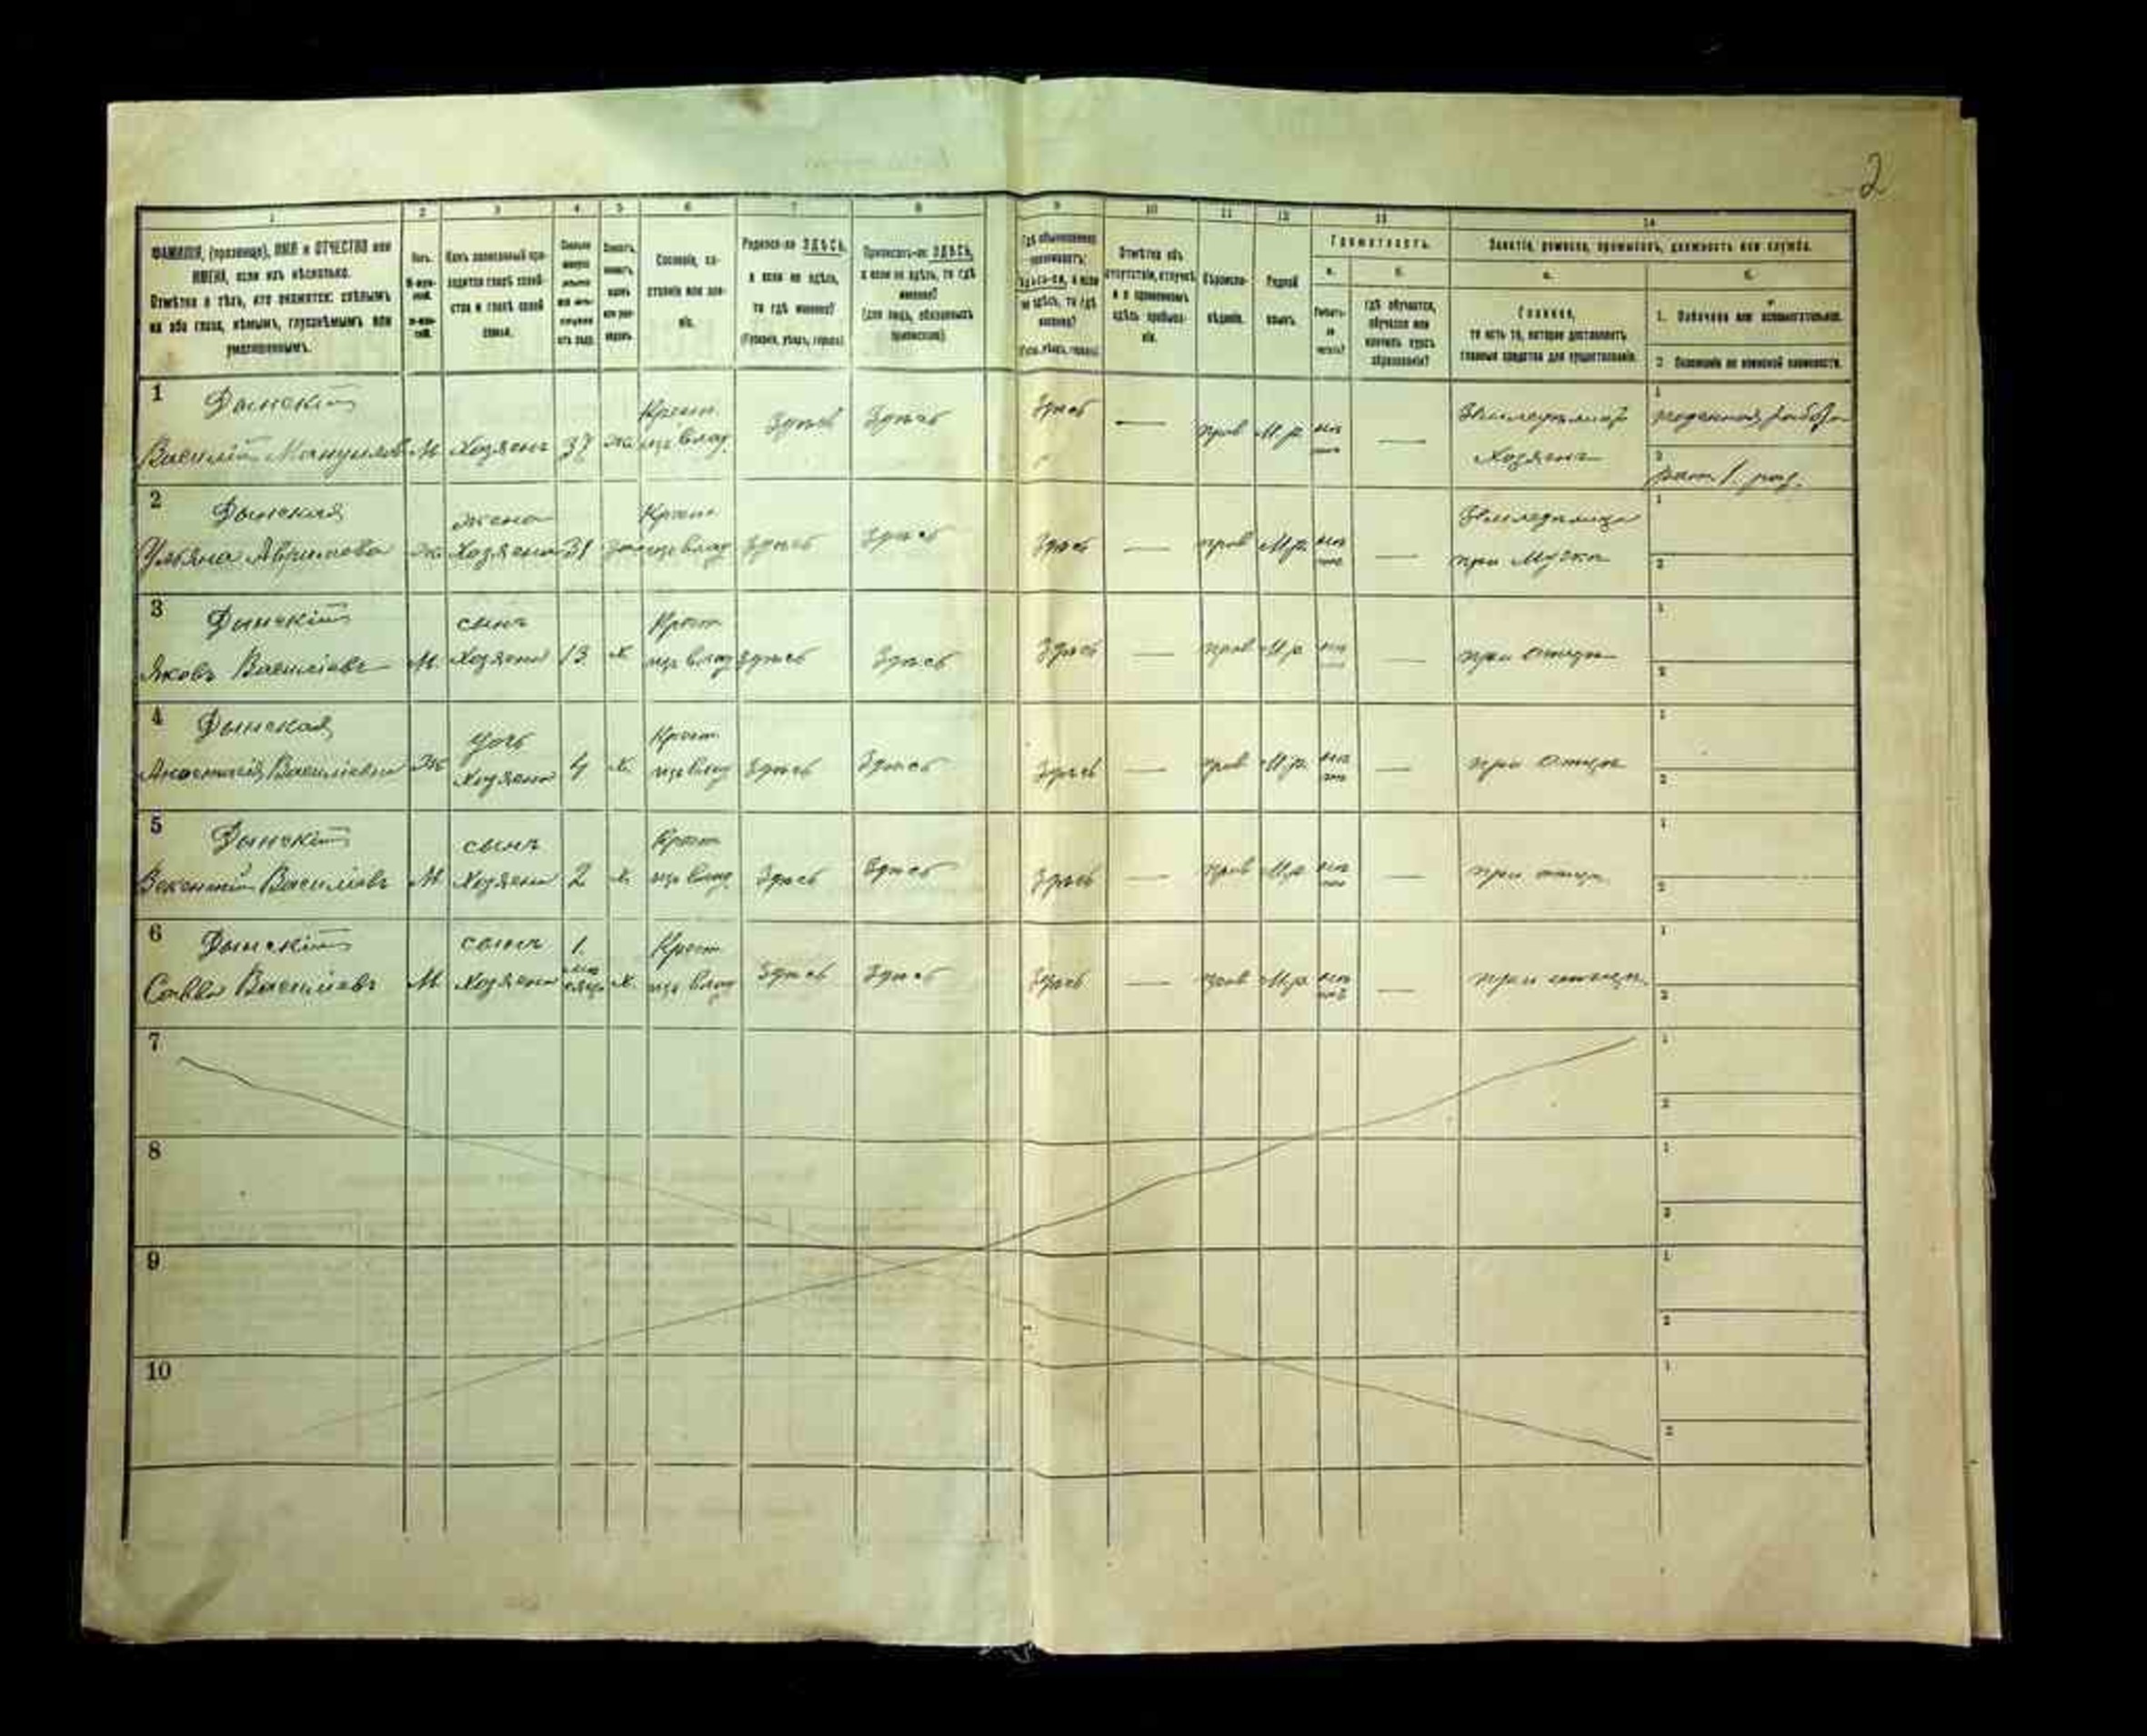 2
1 2 3 4 5 6 7 8 9 10 11 12 13 14
ФАМИЛІЯ, (прозвище), ИМЯ и ОТЧЕСТВО или
ИМЕНА, если ихъ нѣсколько.
Отмѣтка о тѣхъ, кто окажется: слѣпымъ
на оба глаза, нѣмымъ, глухонѣмымъ или
умалишеннымъ.
Полъ.
М-муж-
ской.
Ж-жен-
скій.
Какъ записанный при-
ходится главѣ хозяй-
ства и главѣ своей
семьи.
Сколько
минуло
лѣтъ
или мѣ-
сяцевъ
отъ роду.
Сословіе, со-
стояніе или зва-
ніе.
Родился-ли ЗДѢСЬ,
а если не здѣсь,
то гдѣ именно?
(Губернія, уѣздъ, городъ)
Приписанъ-ли ЗДѢСЬ,
а если не здѣсь, то гдѣ
именно?
(для лицъ, обязанныхъ
припискою).
Гдѣ обыкновенно
проживаетъ:
Здѣсь-ли, а если
не здѣсь, то гдѣ
именно?
(Губ., уѣздъ, городъ)
Отмѣтка объ
отсутствіи, отлучкѣ
и о временномъ
здѣсь пребыва-
ніи.
Вѣроиспо-
вѣданіе.
Родной
языкъ.
Грамотность.
а.
Умѣетъ-
ли
читать?
б.
гдѣ обучается,
обучался или
кончилъ курсъ
образованія?
Занятіе, ремесло, промыселъ, должность или служба.
а.
Главное,
то есть то, которое доставляетъ
главныя средства для существованія.
б.
1. Побочное или вспомогательное.
2. Положеніе по воинской повинности.
1 Дынскій
Василій Мануилов М Хозяинъ 37 ж Крест. изъ влад. Здѣсь Здѣсь Здѣсь — прав М.р. —
Хозяинъ
1 поденная работа
2 рат. 1 раз.
2 Дынская
Ульяна Ж жена Хозяина 31 Крест изъ влад Здѣсь Здѣсь Здѣсь — прав М.р. —
при Мужѣ
1
2
3 Дынскій
Яковъ Василіевъ М. сынъ Хозяина 13 х Крест изъ влад Здѣсь Здѣсь Здѣсь — прав М.р — при отцѣ
1
2
4 Дынская
Анастасія Василіевна Ж дочь Хозяина 4 х. Крест изъ влад Здѣсь Здѣсь Здѣсь — прав М.р. — при отцѣ
1
2
5 Дынскій
Василіевъ М сынъ Хозяина 2 х. Крест изъ влад Здѣсь Здѣсь Здѣсь — прав М.р — при отцѣ
1
2
6 Дынскій
Савва Василіевъ М сынъ Хозяина 1. мѣсяцъ х. Крест изъ влад Здѣсь Здѣсь Здѣсь — прав М.р. — при отцѣ
1
2
7
1
2
8
1
2
9
1
2
10
1
2